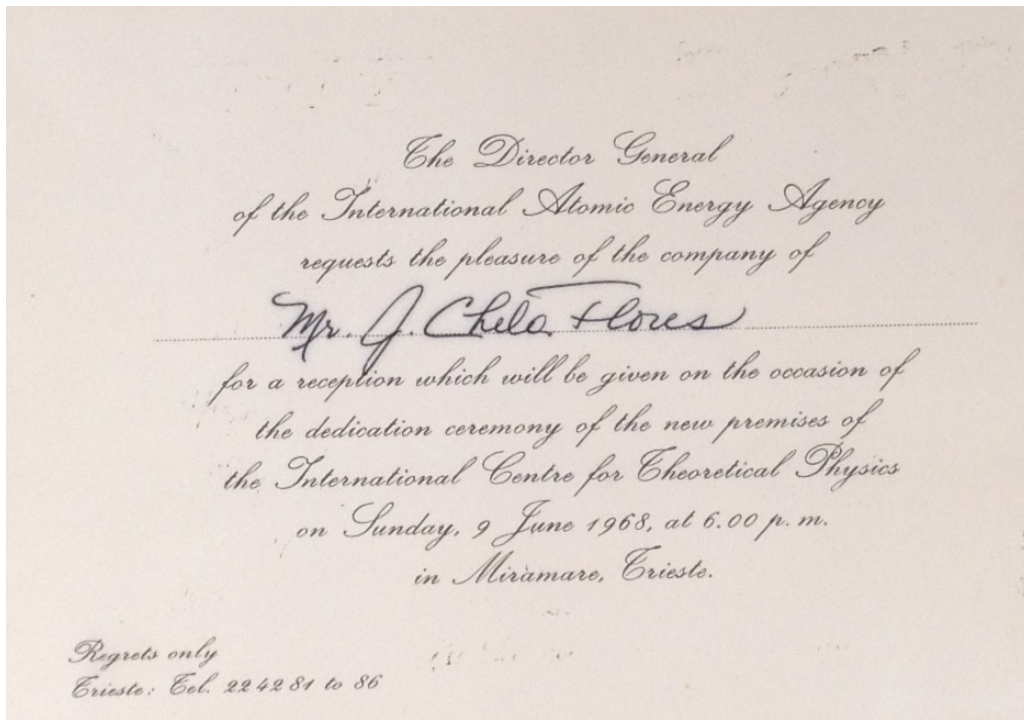 The Director General
of the International Atomic Energy Agency
requests the pleasure of the company of
Mr. J. Chela Flores
for a reception which will be given on the occasion of
the dedication ceremony of the new premises of
the International Centre for Theoretical Physics
on Sunday, 9 June 1968, at 6.00 p. m.
in Miramare, Trieste.
Regrets only
Trieste: Tel. 224281 to 86